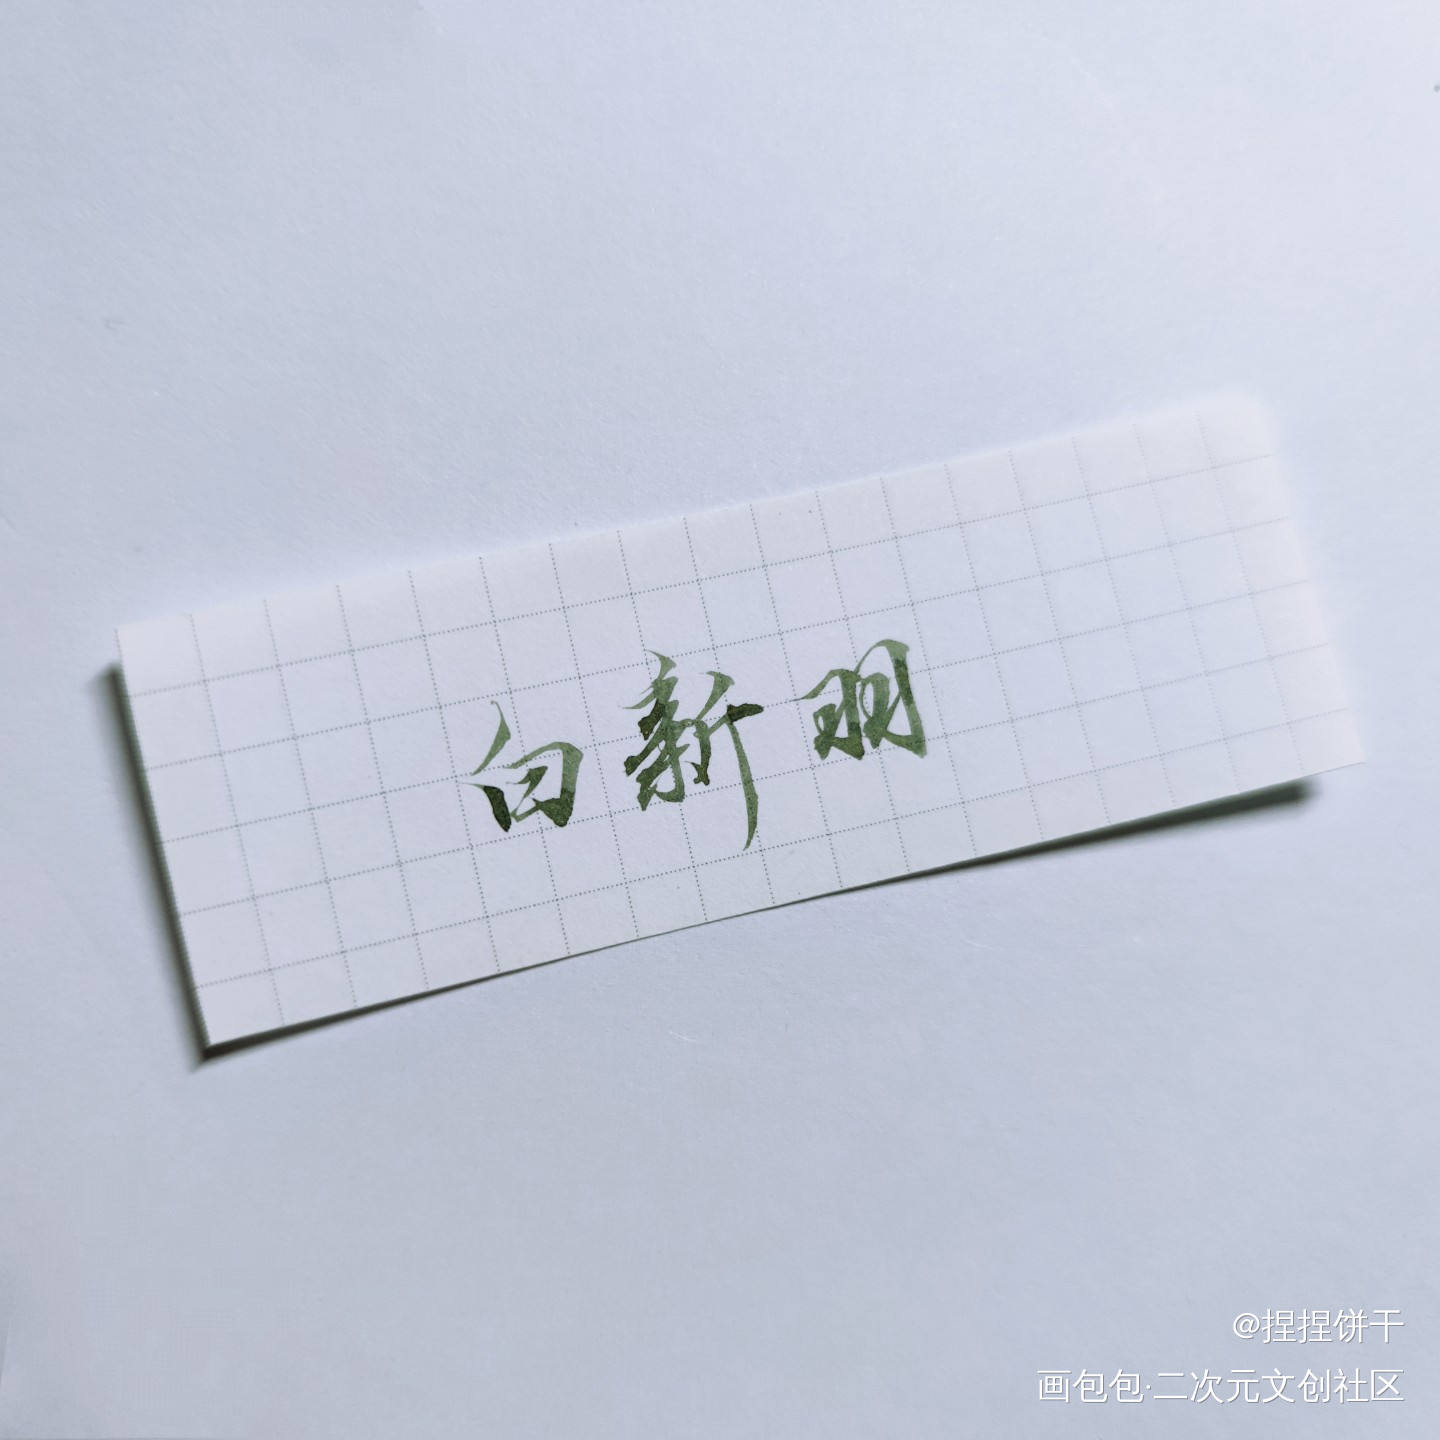 白新羽
@捏捏饼干
画包包·二次元文创社区